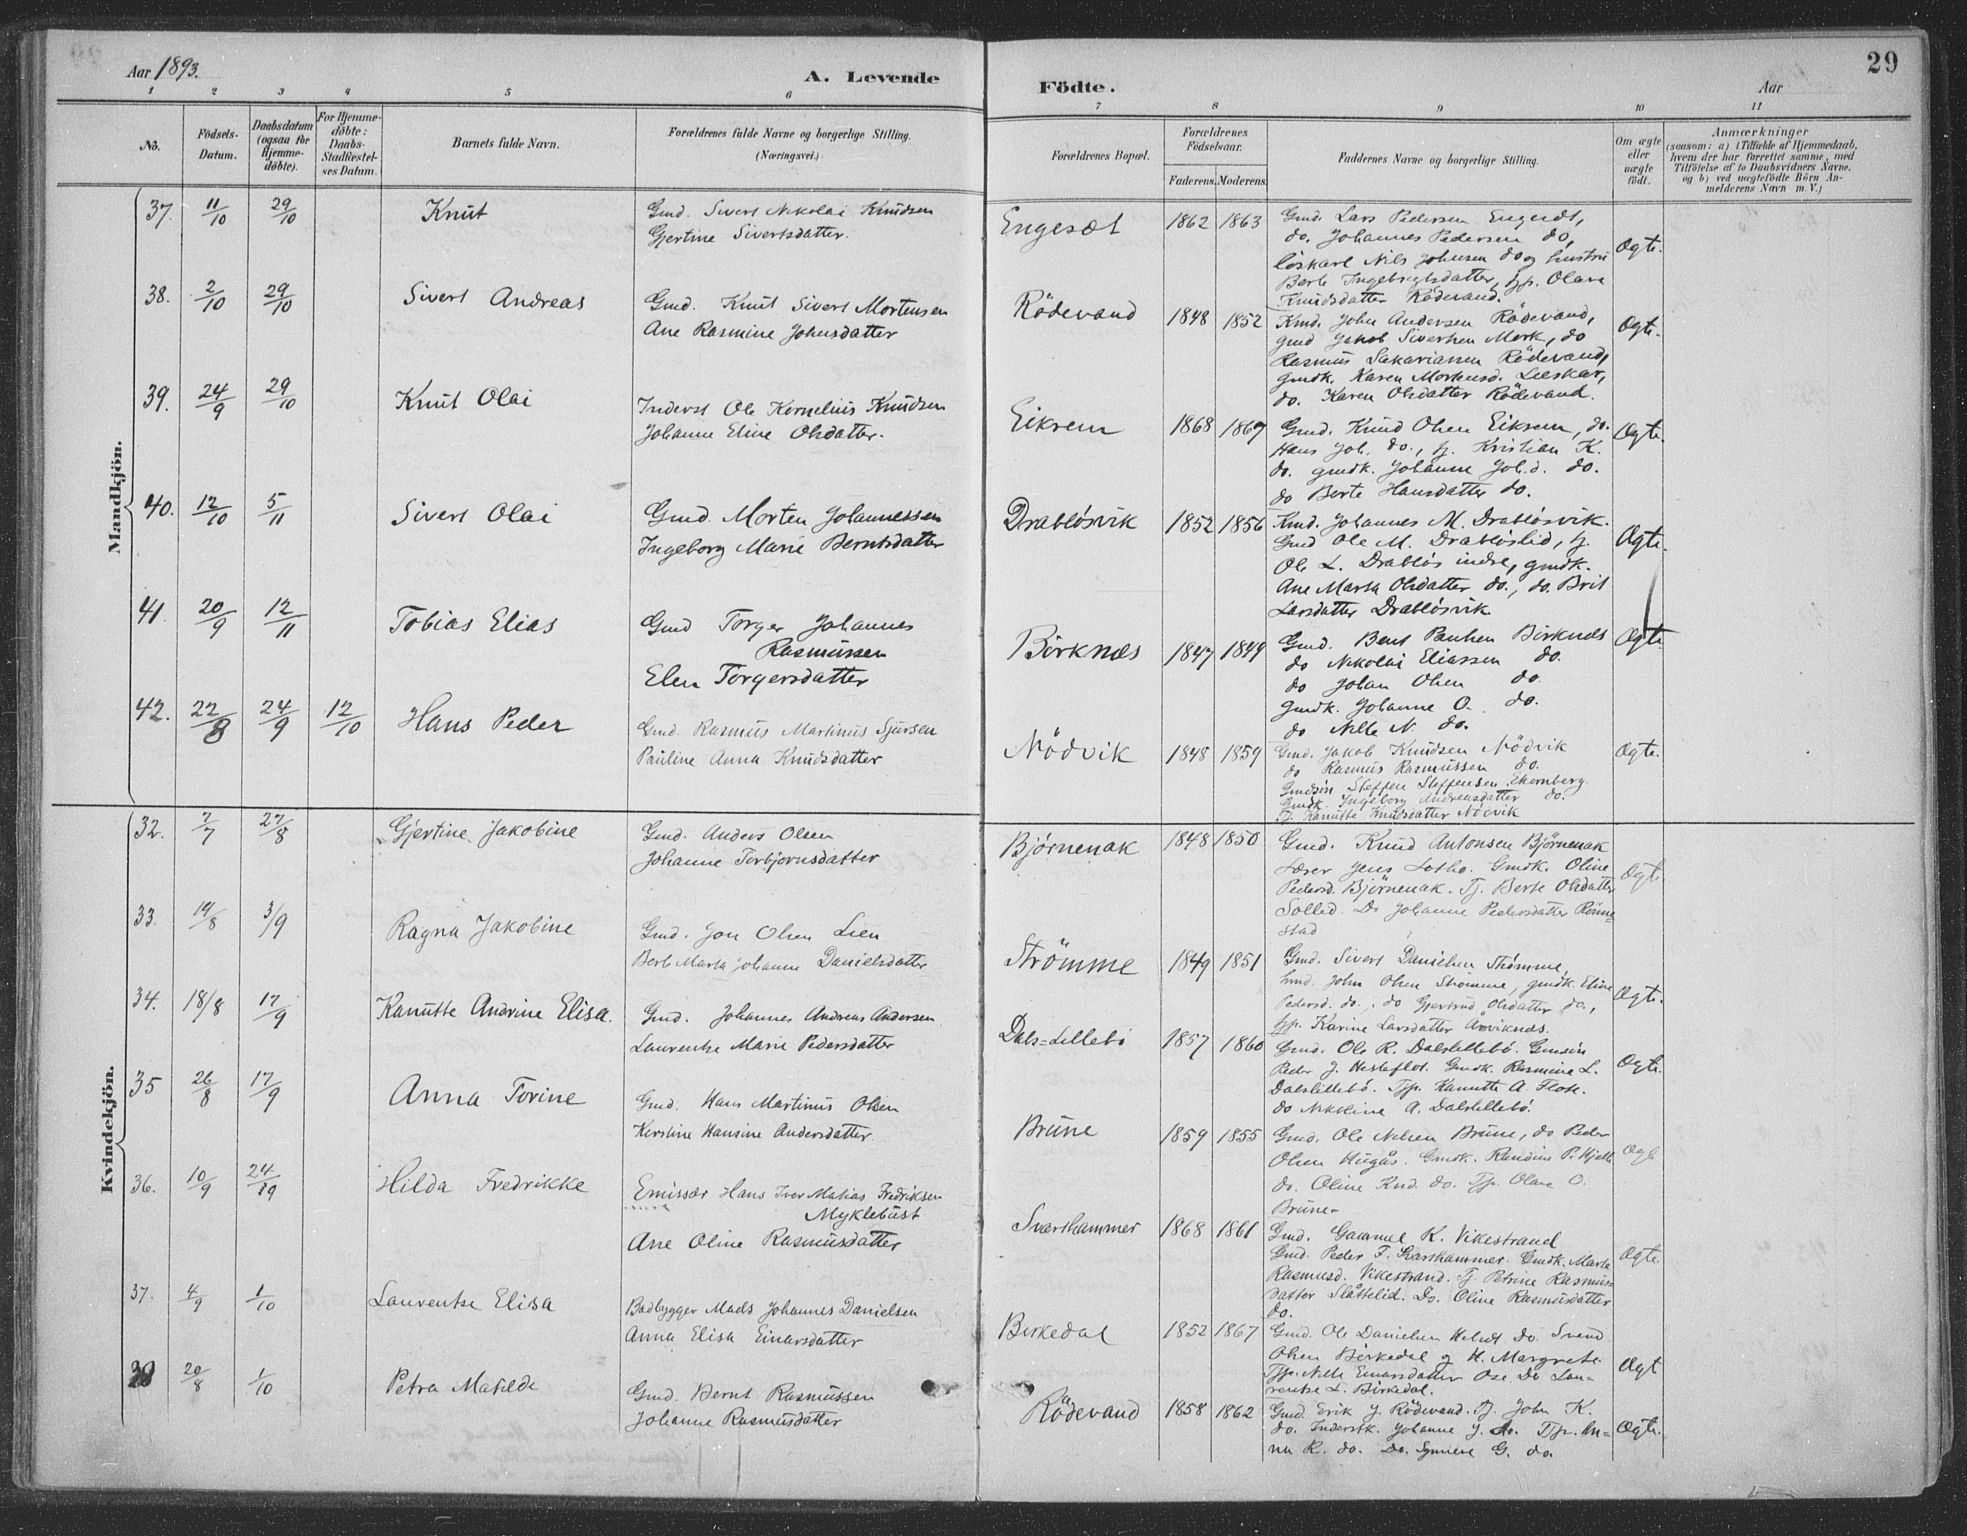 Aar 1893.
A. Levende
Födte.
Aar
29
1 2 3 4 5 6 7 8 9 10 11
No.
Födsels-
Datum.
Daabsdatum
(ogsaa for
Hjemme-
döbte).
For Hjemme-
döbte:
Daabs-
Stadfestel-
ses Datum.
Barnets fulde Navn.
Forældrenes fulde Navne og borgerlige Stilling.
(Næringsvei.)
Forældrenes Bopæl.
Forældrenes
Födselsaar.
Faderens. Moderens.
Faddernes Navne og borgerlige Stilling.
Om ægte
eller
uægte
födt.
Anmærkninger
(saasom: a) i Tilfælde af Hjemmedaab,
hvem der har forrettet samme, med
Tilföielse af to Daabsvidners Navne,
og b) ved uægtefödte Börn An-
melderens Navn m. V.)
Mandkjön.
37. 11/10 29/10 Knut
Gmd. Sivert Nikolai Knudsen
Gjertine Sivertsdatter.
Engeset 1862 1863
Gmd. Lars Pedersen Engeset,
do. Johannes Pedersen do,
löskarl Nils Johnsen do og hustru
Berte Ingebrigtsdatter, pp. Olave
Knudsdatter Rödevand.
Ægte.
38. 2/10 29/10 Sivert Andreas
Gmd. Knut Sivert Mortensen
Ane Rasmine Johnsdatter
Rödevand 1848 1852
Gmd. John Andersen Rödevand,
gmd Jakob Sivertsen Mork, do
Rasmus Sakariassen Rödevand,
gmdk. Karen Mortensd. Lilleskar,
do. Karen Olsdatter Rödevand.
Ægte.
39. 24/9 29/10 Knut Olai
Inderst Ole Kornelius Knudsen
Johanne Eline Olsdatter.
Eikrem 1868 1867
Gmd. Knud Olsen Eikrem, do.
Hans Joh. do., tj. Kristian K.
do. gmdk. Johanne Joh.d. do.
do Berte Hansdatter do.
Ægte.
40. 12/10 5/11 Sivert Olai
Gmd. Morten Johannessen
Ingeborg Marie Berntsdatter
Drabløsvik 1852 1856
Gmd. Johannes M. Drabløsvik.
Gmd Ole M. Drabløslid, tj.
Ole L. Drabløs indre, gmdk.
Ane Marta Olsdatter do., do. Brit
Larsdatter Drabløsvik
Ægte.
41. 20/9 12/11 Tobias Elias
Gmd Torger Johannes
Rasmussen
Elen Torgersdatter
Birknæs 1847 1849
Gmd. Bent Paulsen Birknæs
do Nikolai Eliassen do.
do Johan Olsen do
gmdk. Johanne O. do.
do Nille N. do.
Ægte
42. 22/8 24/9 12/10 Hans Peder
Gmd. Rasmus Martinus Sjursen
Pauline Anna Knudsdatter
Nödvik 1848 1859
Gmd. Jakob Knudsen Nödvik
do Rasmus Rasmussen do.
Gmdsön Steffen Steffensen Ekornberg
Gmdk. Ingeborg Andreasdatter do.
Tj. Kanutte Knutsdatter Nödvik
Ægte.
Kvindekjön.
32. 7/7 27/8 Gjertine Jakobine
Gmd. Anders Olsen
Johanne Torbjornsdatter
Bjørnenak 1848 1850
Gmd. Knud Antonsen Bjørnenak
Lærer Jens Lothe. Gmdk. Oline
Pedersd. Bjørnenak. Tj. Berte Olsdatter
Solled. Do Johanne Pedersdatter Rönne-
stad
Ægte
33. 14/8 3/9 Ragna Jakobine
Gmd. Jon Olsen Lien
Berte Marta Johanne Danielsdatter
Strömme 1849 1851
Gmd. Sivert Danielsen Strömme,
Gmd. John Olsen Strömme, gmdk. Eline
Pedersd. do., do Gjertrud Olsdatter do.,
tjp. Karine Larsdatter Amviknes.
Ægte.
34. 18/8 17/9 Kanutte Andrine Elisa.
Gmd. Johannes Andreas Andersen
Laurentse Marie Pedersdatter
Dals=Lillebö 1857 1860
Gmd. Ole R. Dalslillebö. Gmdsön
Peder J. Hesteflot. Gmdk. Rasmine L.
Dalslillebö. Tjp. Kanutte A. Flote.
do Nikoline A. Dalslillebö.
Ægte.
35 26/8 17/9 Anna Torine
Gmd. Hans Martinus Olsen
Kirstine Hansine Andersdatter.
Brune 1859 1855
Gmd. Ole Nilsen Brune, do Peder
Olsen Hugås. Gmdk. Randine P. Hjelle
do. Oline Knd. do. Tjp. Olave O.
Brune.
Ægt
36. 10/9 24/9 Hilda Fredrikke
Emissær Hans Iver Matias Fredriksen
Myklebust
Ane Oline Rasmusdatter
Svarshammer 1868 1861
Gmd. Gammel K. Vikestrand
Gmd. Peder F. Svarshammer. Gmdk. Marte
Rasmusd. Vikestrand. Tj. Petrine Rasmus-
datter Slåttelid. Do. Oline Rasmusdatter
do.
Ægte.
37. 4/9 1/10 Laurentse Elisa
Badbygger Mads Johannes Danielsen
Anna Elisa Einarsdatter
Birkedal 1852 1867
Gmd. Ole Danielsen do. Svend
Olsen Birkedal og H. Margrete.
Tjp. Nille Einarsdatter Ose Do Lau-
rentse L. Birkedal.
Ægt
38 20/8 1/10 Petra Matilde
Gmd. Bernt Rasmussen
Johanne Rasmusdatter
Rödevand 1858 1862
Gmd. Erik J. Rödevand. Tj. John K.
do. Inderstk. Johanne J. do. Tjp. An-
na R. do. Do. Synneve G. do
Ægte.